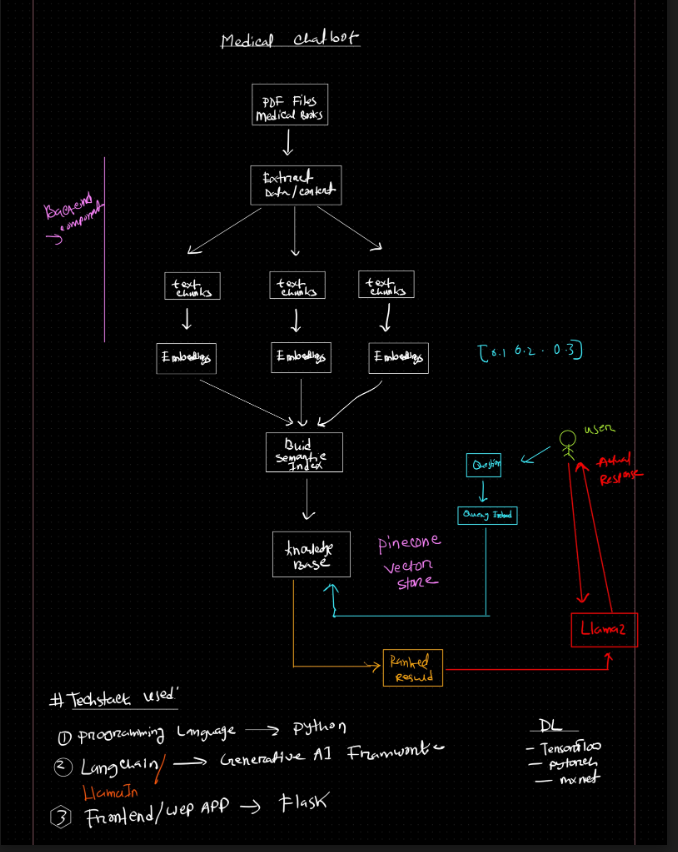 Medical Chatbot
PDF Files
Medical Books
Extract
Data/content
Backend
component
text
chunks
text
chunks
text
chunks
Embeddings
Embeddings
Embeddings
[0.1 0.2 . 0.3]
Buid
Semantic
Index
user
Question
Actual
Response
Query
Knowledge
Base
pinecone
vector
store
Llama2
Ranked
# Techstack used:
① programming Language → python
② LangChain/ → Generative AI
LlamaIn
③ Frontend/WEP APP → Flask
DL
- Tensorfloo
- pytorch
- mxnet